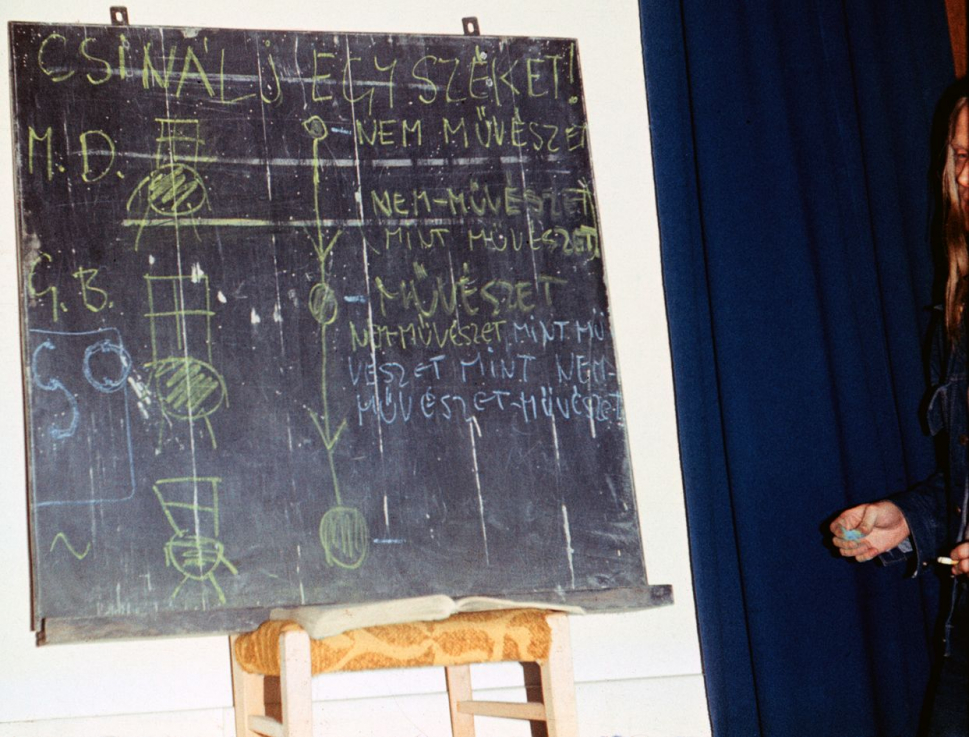 CSINÁLJ EGY SZÉKET!
M.D.
NEM MŰVÉSZET
NEM-MŰVÉSZET
MINT MŰVÉSZET
G.B.
MŰVÉSZET
NEM-MŰVÉSZET MINT MŰ
VÉSZET MINT NEM-
MŰVÉSZET-MŰVÉSZET